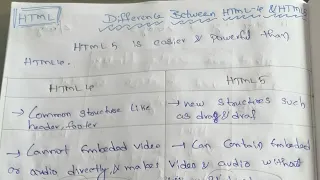 HTML
Difference Between HTML-4 & HTML
HTML 5 is easier & powerful than
HTML4.
HTML 4
HTML 5
→ Common structure like
header, footer
→ new structures such
as drag & draf
→ Cannot Embedded video
or audio directly & makes
→ Can Contain Embedded
Video & audio without